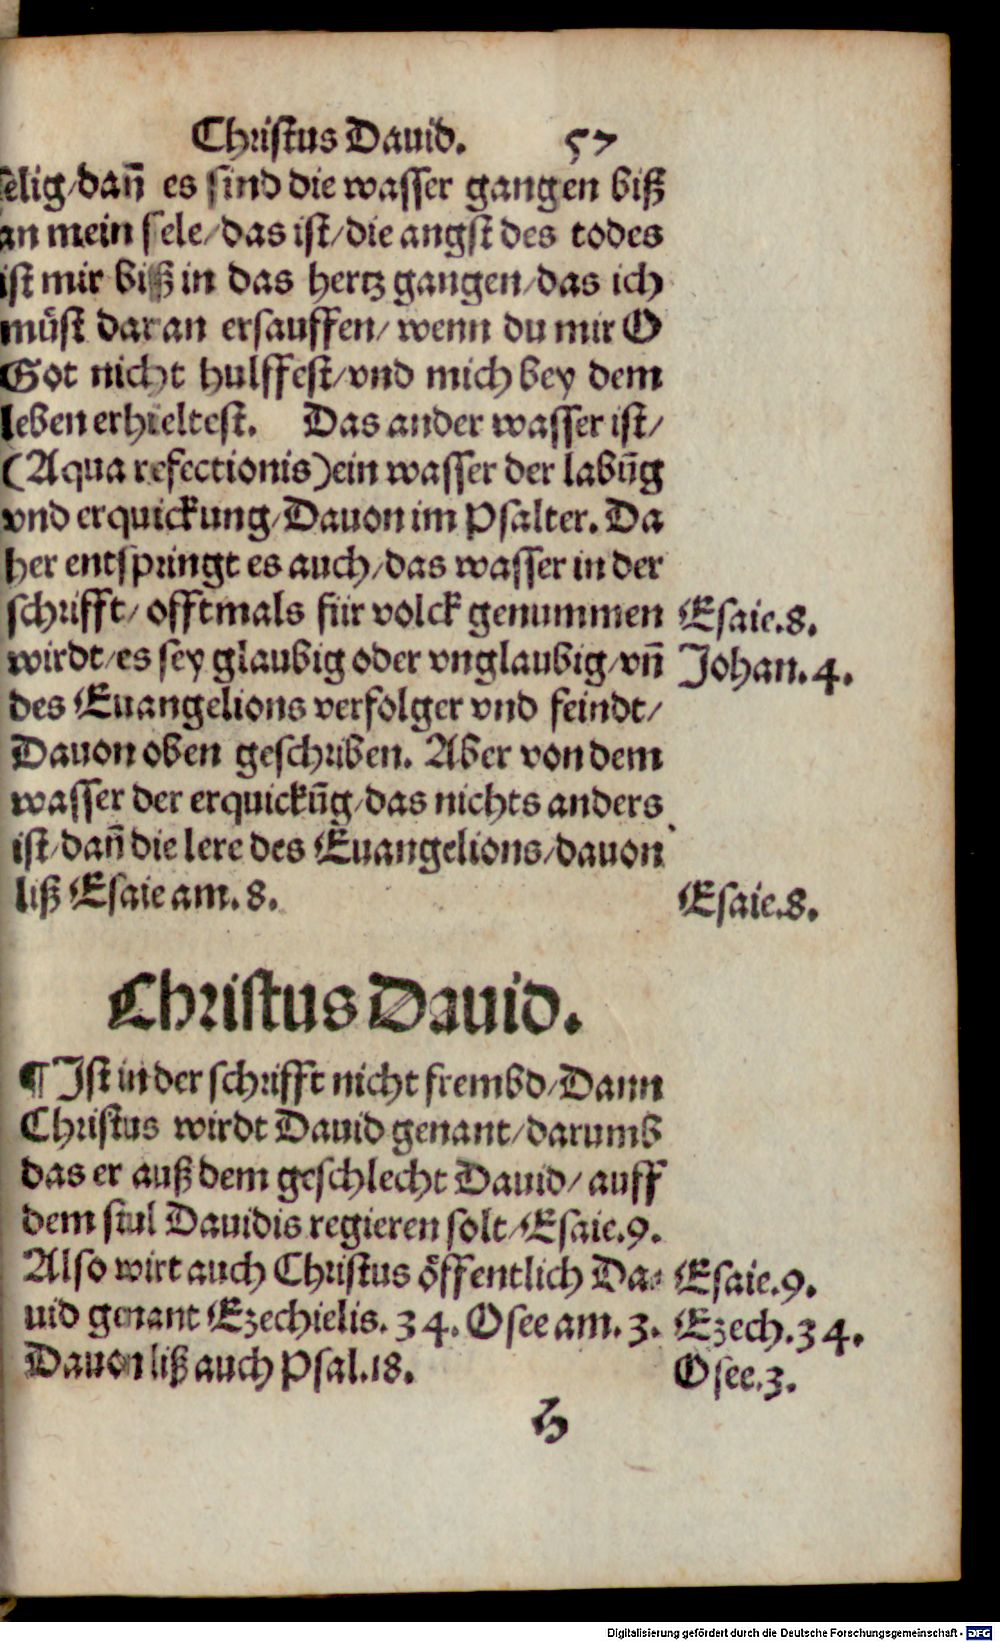 Christus Dauid. 57
selig/dañ es sind die wasser gangen biß
an mein sele/das ist/die angst des todes
ist mir biß in das hertz gangen/das ich
müst daran ersauffen/ wenn du mir O
Got nicht hulffest/vnd mich bey dem
leben erhieltest. Das ander wasser ist/
(Aqua refectionis)ein wasser der labūg
vnd erquickung/Dauon im Psalter. Da
her entspringt es auch/das wasser in der
schrifft/ offtmals für volck genummen
Esaie.8.
wirdt/es sey glaubig oder vnglaubig/vñ
Johan.4.
des Euangelions verfolger vnd feindt/
Dauon oben geschriben. Aber von dem
wasser der erquickūg/das nichts anders
ist/dañ die lere des Euangelions/dauon
liß Esaie am.8.
Esaie.8.
Christus Dauid.
¶ Ist in der schrifft nicht frembd/Dann
Christus wirdt Dauid genant/darumb
das er auß dem geschlecht Dauid/ auff
dem stul Dauidis regieren solt/Esaie.9.
Also wirt auch Christus öffentlich Da⸗
Esaie.9.
uid genant Ezechielis.34. Osee am.3.
Ezech.34.
Dauon liß auch Psal.18.
Osee.3.
H
Digitalisierung gefördert durch die Deutsche Forschungsgemeinschaft - DFG